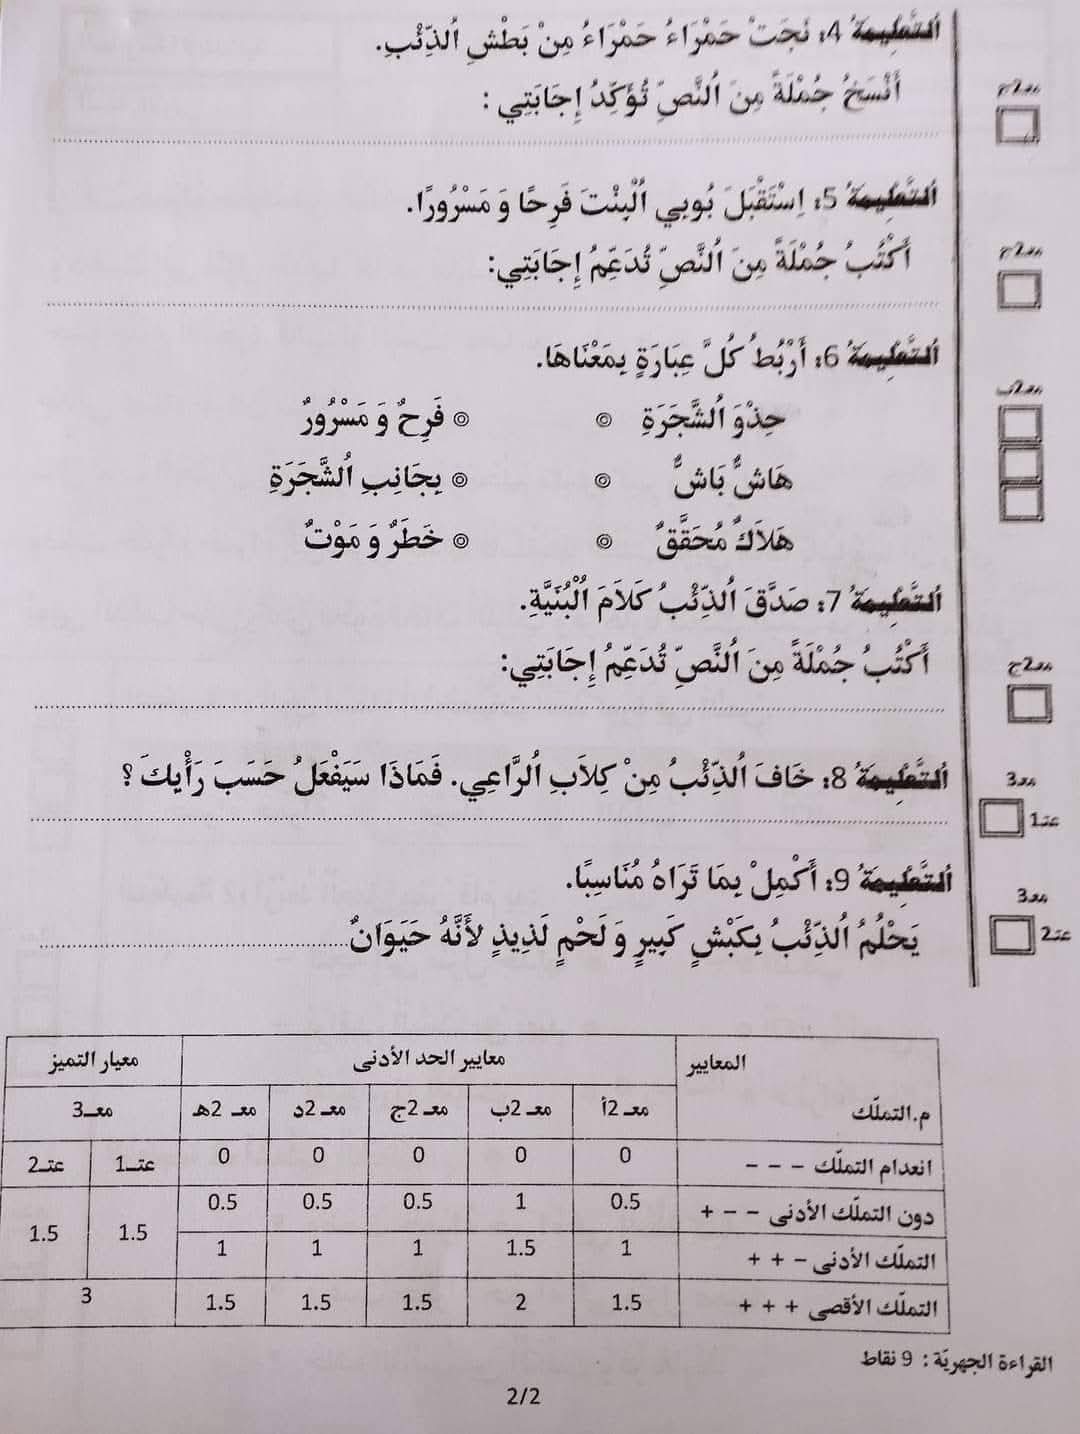 اُلتَّعْلِيمَةُ 4: نَجَتْ حَمْرَاءُ حَمْرَاءُ مِنْ بَطْشِ اُلذِّئْبِ.
معـ2ج
أَنْسَخُ جُمْلَةً مِنَ اُلنَّصِّ تُؤَكِّدُ إِجَابَتِي :
اُلتَّعْلِيمَةُ 5: اِسْتَقْبَلَ بُوبِي اُلْبِنْتَ فَرِحًا وَ مَسْرُورًا.
معـ2ج
أَكْتُبُ جُمْلَةً مِنَ اُلنَّصِّ تُدَعِّمُ إِجَابَتِي:
اُلتَّعْلِيمَةُ 6: أَرْبُطُ كُلَّ عِبَارَةٍ بِمَعْنَاهَا.
معـ2ب
حِذْوَ اُلشَّجَرَةِ ◎ ◎ فَرِحٌ وَ مَسْرُورٌ
هَاشٌّ بَاشٌّ ◎ ◎ بِجَانِبِ اُلشَّجَرَةِ
هَلاَكٌ مُحَقَّقٌ ◎ ◎ خَطَرٌ وَ مَوْتٌ
اُلتَّعْلِيمَةُ 7: صَدَّقَ اُلذِّئْبُ كَلاَمَ اُلْبُنَيَّةِ.
معـ2ج
أَكْتُبُ جُمْلَةً مِنَ اُلنَّصِّ تُدَعِّمُ إِجَابَتِي:
اُلتَّعْلِيمَةُ 8: خَافَ اُلذِّئْبُ مِنْ كِلاَبِ اُلرَّاعِي. فَمَاذَا سَيَفْعَلُ حَسَبَ رَأْيِكَ ؟
معـ3
عتـ1
اُلتَّعْلِيمَةُ 9: أَكْمِلْ بِمَا تَرَاهُ مُنَاسِبًا.
معـ3
عتـ2
يَحْلُمُ اُلذِّئْبُ بِكَبْشٍ كَبِيرٍ وَ لَحْمٍ لَذِيذٍ لأَنَّهُ حَيَوَانٌ
المعايير معايير الحد الأدنى معيار التميز
م.التملّك معـ 2أ معـ 2ب معـ 2ج معـ 2د معـ 2هـ معـ3
انعدام التملّك – – – 0 0 0 0 0 عتـ1 عتـ2
دون التملّك الأدنى – – + 0.5 1 0.5 0.5 0.5 1.5 1.5
التملّك الأدنى – + + 1 1.5 1 1 1
التملّك الأقصى + + + 1.5 2 1.5 1.5 1.5 3
القراءة الجهريّة : 9 نقاط
2/2